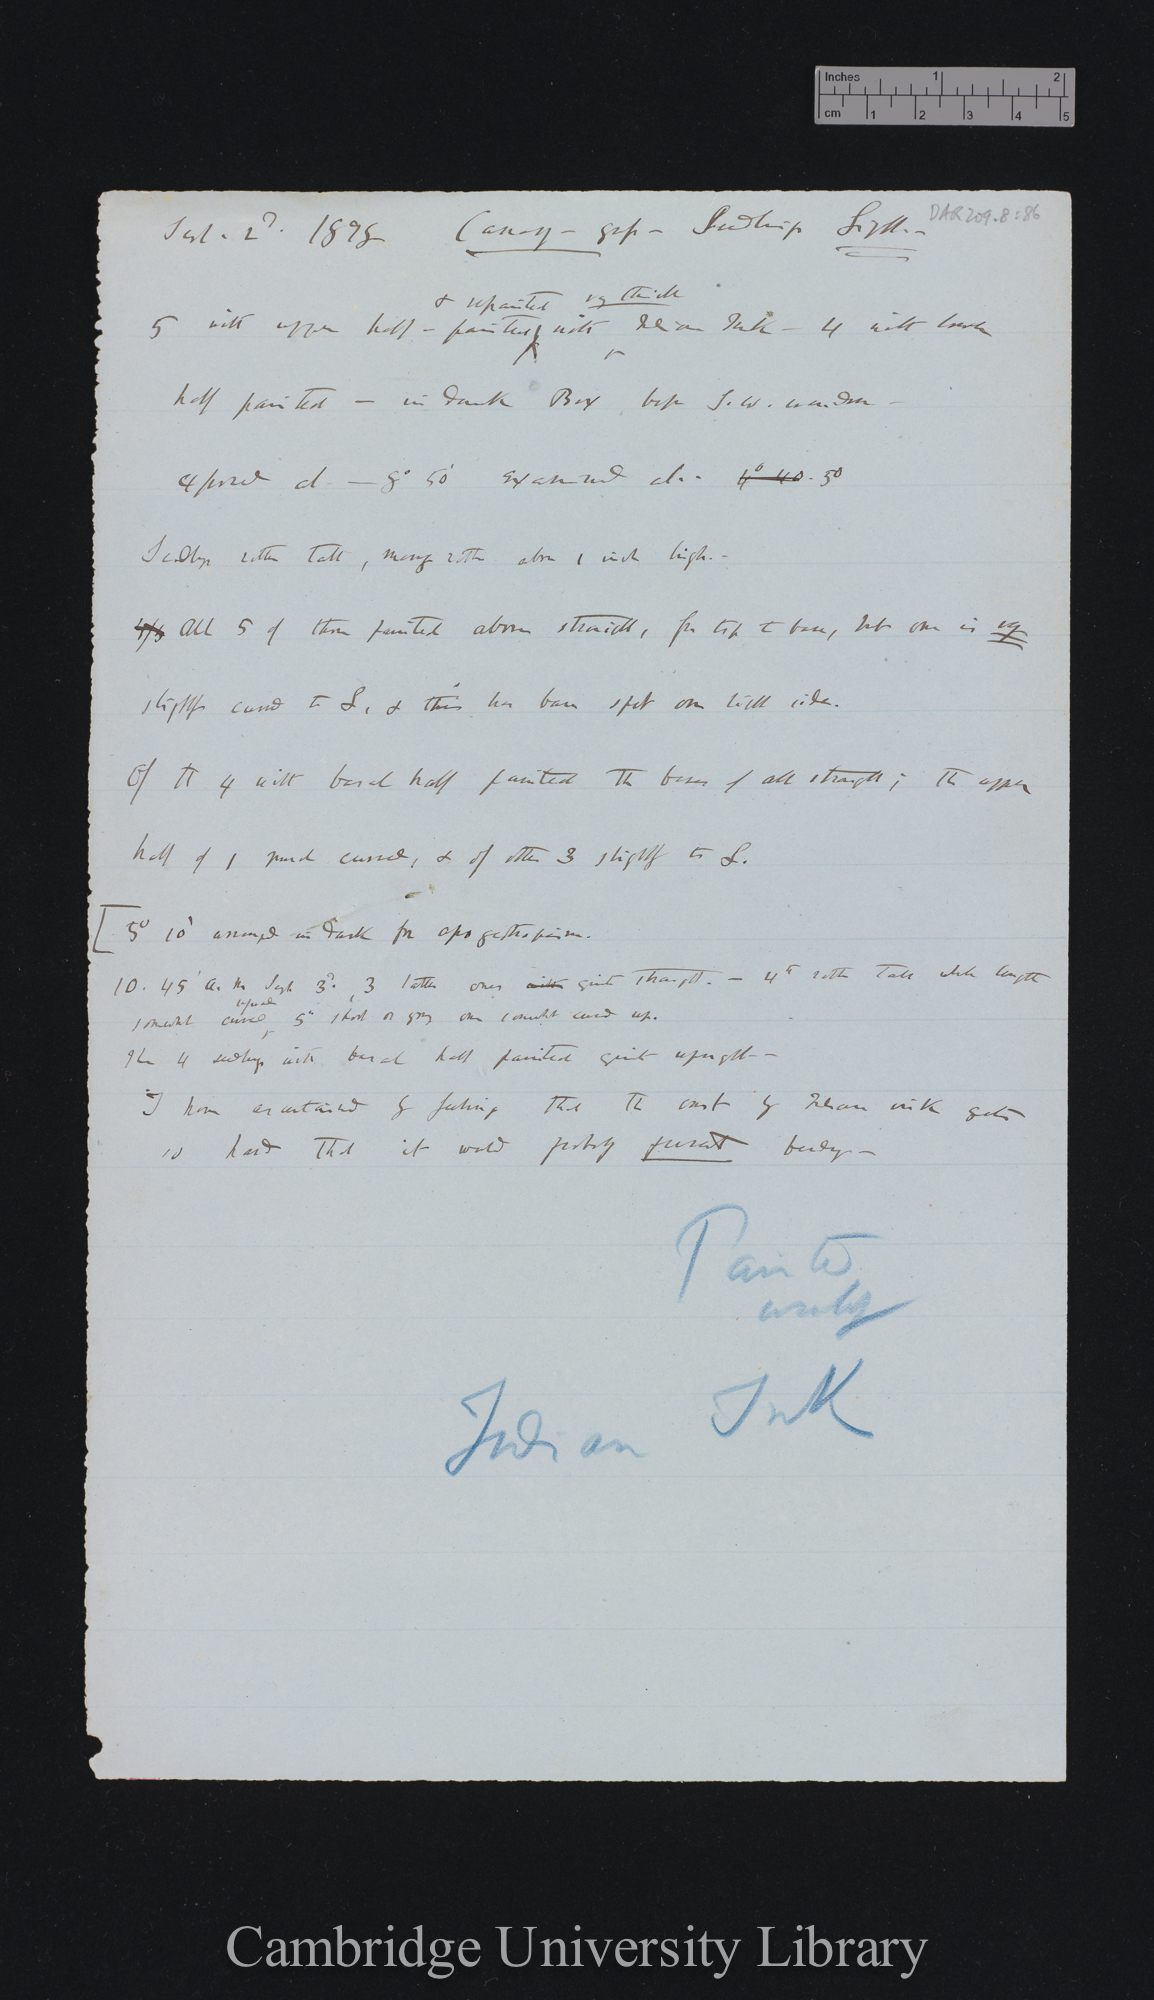 Inches 1 2
cm 1 2 3 4 5
DAR 209.8:86
Sept. 2d. 1878 Canary-grass Seedlings Light.—
& repainted vy thick
5 with upper half – painted with Indian Ink – 4 with lower
half painted – in dark Box before S.W. window –
exposed at — 8° 50' examined at.– 4° 40. 50
Seedlings rather tall, many rather above 1 inch high.–
4/5 All 5 of those painted above straight, from top to base, but one is vy
slightly curved to L, & this has bare spot on light side.
Of the 4 with basal half painted the bases of all straight; the upper
half of 1 much curved, & of other 3 slightly to L.
[5° 10' arranged in dark for apogeotropism.
10. 45' a. m Sept 3d. 3 latter ones quite straight. – 4th rather tall whole length
upward
somewhat curved, 5th short or young one somewhat curved up.
The 4 seedlings with basal half painted quite upright –
I have ascertained by feeling that the crust of Indian ink gets
so hard that it would probably prevent bending –
Painted
with
Indian Ink
Cambridge University Library